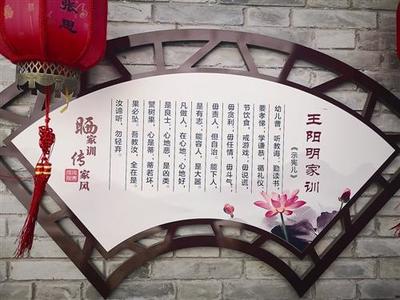 王阳明家训
《示宪儿》
幼儿曹，听教诲，勤读书，
要孝悌，学谦恭，循礼仪，
节饮食，戒游戏，毋说谎，
毋贪利，毋任情，毋斗气，
毋责人，但自治，能下人，
是有志，能容人，是大器，
凡做人，在心地，心地好，
是良士，心地恶，是凶类，
譬树果，心是蒂，蒂若坏，
果必坠，吾教汝，全在是。
汝谛听，勿轻弃。
晒家训
传家风